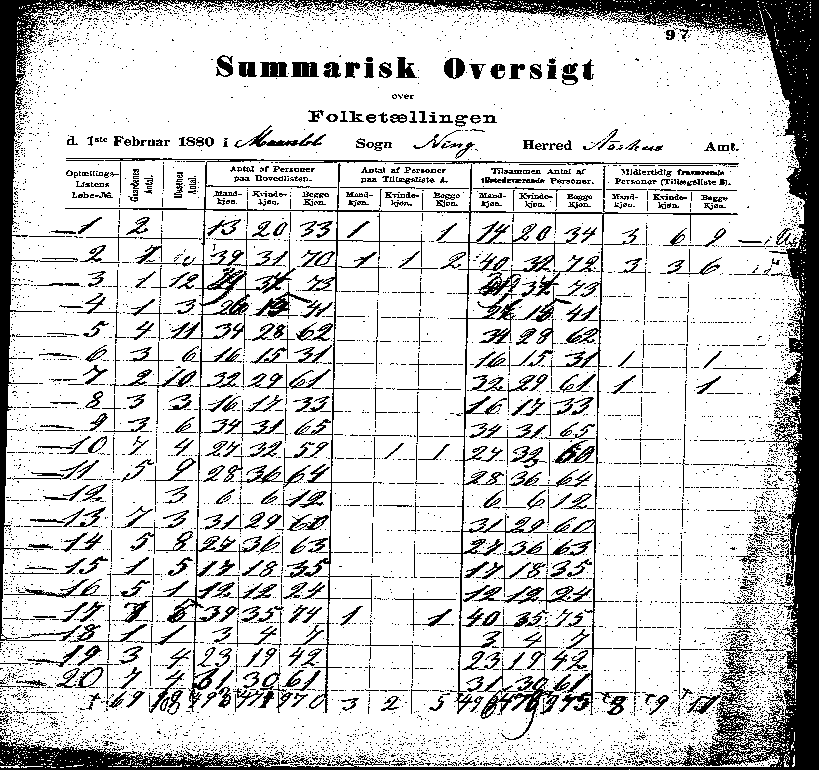 97
Summarisk Oversigt
over
Folketællingen
d. 1ste Februar 1880 i Sogn Ning Herred Aarhus Amt.
Optællings-Listens Løbe-№. Gaardenes Antal. Husenes Antal. Antal af Personer paa Hovedlisten. Antal af Personer paa Tillægsliste A. Tilsammen Antal af tilstedeværende Personer. Midlertidig fraværende Personer (Tillægsliste B).
Mand-kjøn. Kvinde-kjøn. Begge Kjøn. Mand-kjøn. Kvinde-kjøn. Begge Kjøn. Mand-kjøn. Kvinde-kjøn. Begge Kjøn. Mand-kjøn. Kvinde-kjøn. Begge Kjøn.
1 2 13 20 33 1 1 14 20 34 3 6 9
2 7 10 39 31 70 1 1 2 40 32 72 3 3 6
3 1 12 73 73
4 1 3 26 15 41 26 15 41
5 4 11 34 28 62 34 28 62
6 3 6 16 15 31 16 15 31 1 1
7 2 10 32 29 61 32 29 61 1 1
8 3 3 16 17 33 16 17 33
9 3 6 34 31 65 34 31 65
10 7 4 27 32 59 1 1 27 33 60
11 5 9 28 36 64 28 36 64
12 3 6 6 12 6 6 12
13 7 3 31 29 60 31 29 60
14 5 8 27 36 63 27 36 63
15 1 5 17 18 35 17 18 35
16 5 1 12 12 24 12 12 24
17 7 5 39 35 74 1 1 40 35 75
18 1 1 3 4 7 3 4 7
19 3 4 23 19 42 23 19 42
20 7 4 31 30 61 31 30 61
69 108 970 3 2 5 496 479 975 8 9 17